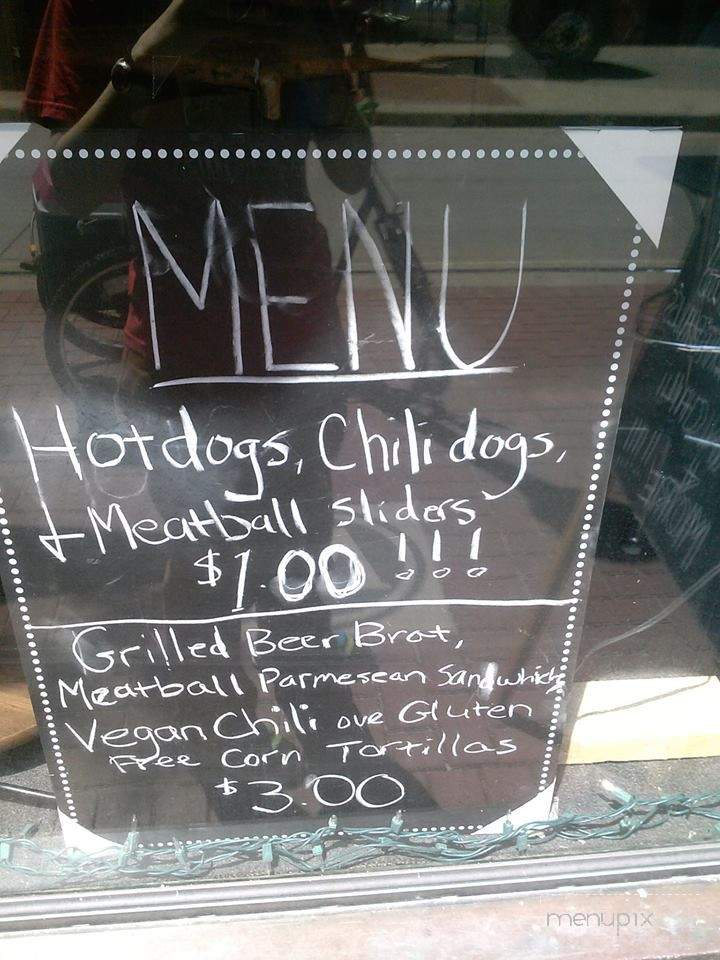 MENU
Hotdogs, Chili dogs,
+ Meatball sliders
$1.00 !!!
Grilled Beer Brat,
Meatball Parmesean Sandwhich
Vegan Chili ove Gluten
Free Corn Tortillas
$3.00
menupix